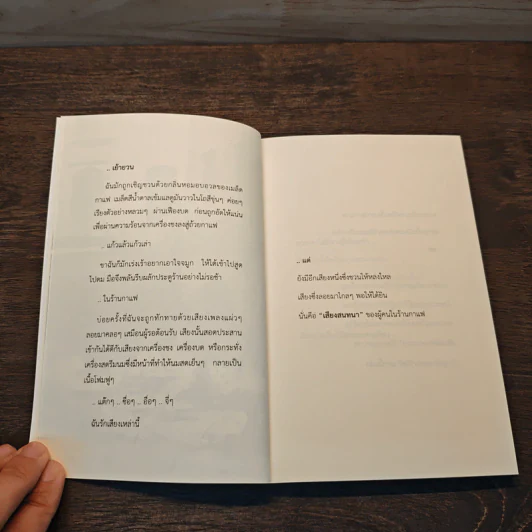 .. เย้ายวน
ฉันมักถูกเชิญชวนด้วยกลิ่นหอมอบอวลของเมล็ด
กาแฟ เมล็ดสีน้ำตาลเข้มแลดูมันวาวในโถสีขุ่นๆ ค่อยๆ
เรียงตัวอย่างหลวมๆ ผ่านเฟืองบด ก่อนถูกอัดให้แน่น
เพื่อผ่านความร้อนจากเครื่องชงลงสู่ถ้วยกาแฟ
.. แก้วแล้วแก้วเล่า
ขาฉันก็มักเร่งเร้าอยากเอาใจจมูก ให้ได้เข้าไปสูด
ไปดม มือจึงพลันรีบผลักประตูร้านอย่างไม่รอช้า
.. ในร้านกาแฟ
บ่อยครั้งที่ฉันจะถูกทักทายด้วยเสียงเพลงแผ่วๆ
ลอยมาคลอๆ เสมือนผู้รอต้อนรับ เสียงนั้นสอดประสาน
เข้ากันได้ดีกับเสียงจากเครื่องชง เครื่องบด หรือกระทั่ง
เครื่องสตรีมนมซึ่งมีหน้าที่ทำให้นมสดเย็นๆ กลายเป็น
เนื้อโฟมฟูๆ
.. แต๊กๆ .. ซื่อๆ .. อื้อๆ .. จี่ๆ
ฉันรักเสียงเหล่านี้
.. แต่
ยังมีอีกเสียงหนึ่งซึ่งชวนให้หลงใหล
เสียงซึ่งลอยมาไกลๆ พอให้ได้ยิน
นั่นคือ "เสียงสนทนา" ของผู้คนในร้านกาแฟ